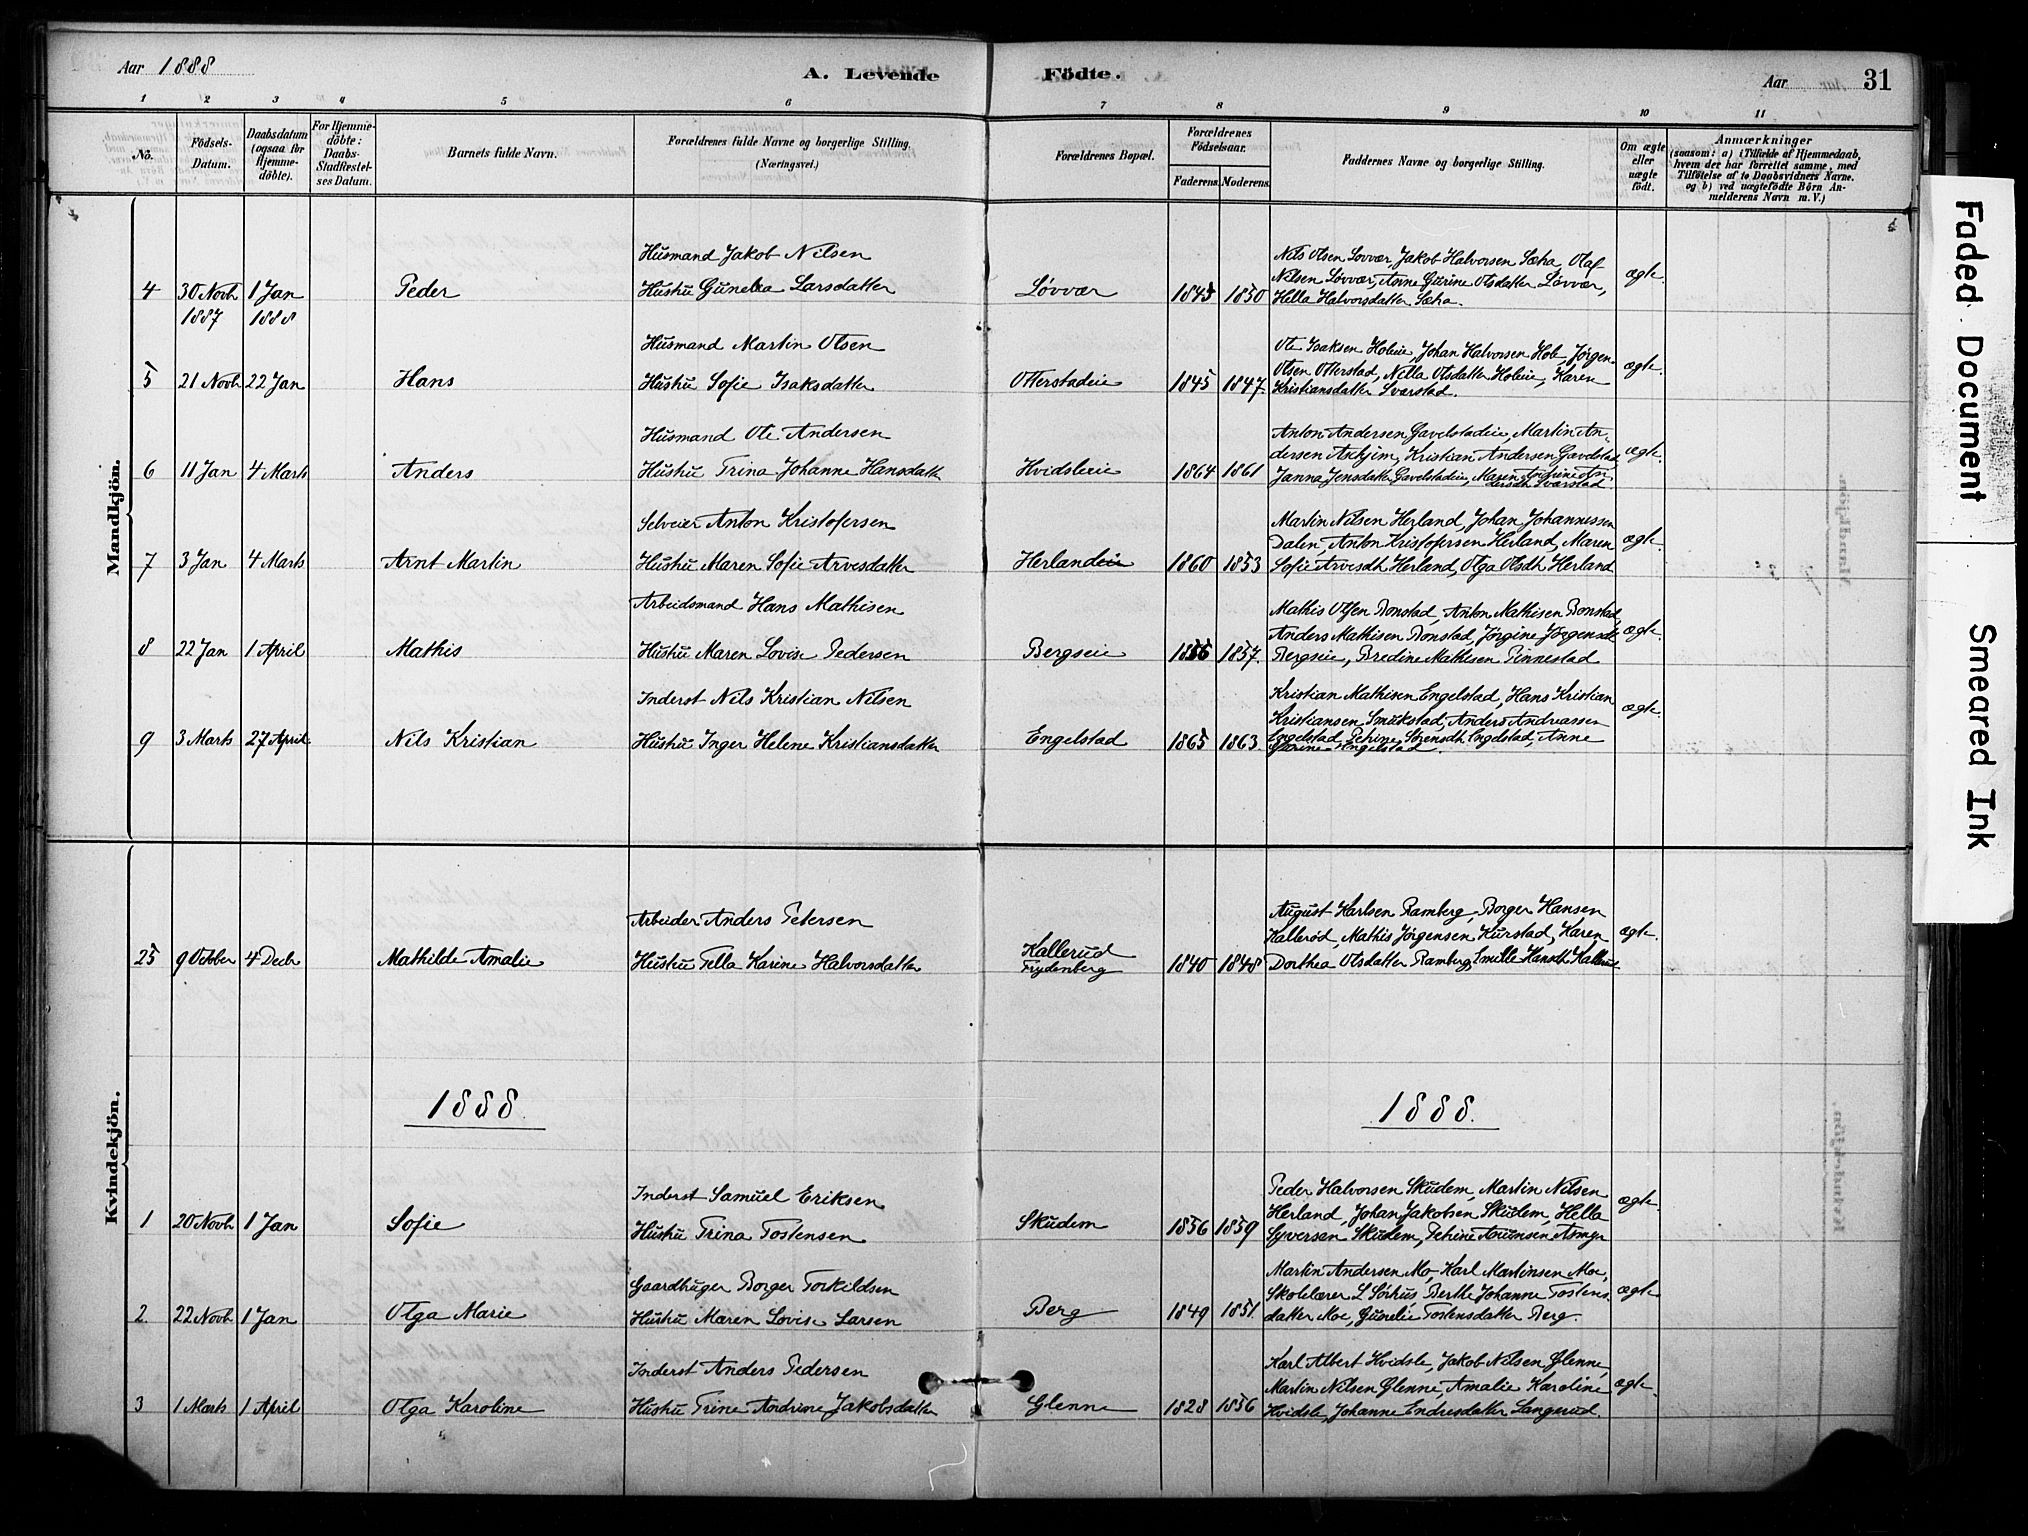 Aar 1888
A. Levende Födte.
Aar 31
1 2 3 4 5 6 7 8 9 10 11
No.
Födsels-Datum.
Daabsdatum (ogsaa for Hjemme-döbte).
For Hjemme-döbte: Daabs-Stadfæstel-ses Datum.
Barnets fulde Navn.
Forældrenes fulde Navne og borgerlige Stilling.
(Næringsvei.)
Forældrenes Bopæl.
Forældrenes Födselsaar.
Faderens. Moderens.
Faddernes Navne og borgerlige Stilling.
Om ægte eller uægte födt.
Anmærkninger
(saasom: a) i Tilfælde af Hjemmedaab,
hvem der har forrettet samme, med
Tilföielse af to Daabsvidners Navne.
og b) ved uægtefödte Börn An-
melderens Navn m. V.)
Mandkjön.
Husmand Jakob Nilsen
Nils Olsen Løvvær, Jakob Halvorsen Sæha Olaf
Nilsen Løvvær, Anne Gurine Olsdatter Løvvær,
4 30 Novb 1 Jan Peder Hustru Gunelia Larsdatter Løvvær 1845 1850 Hella Halvorsdatter Sæha. ægte
1887 1888
Husmand Martin Olsen
Ole Isaksen Holeie, Johan Halvorsen Hole, Jörgen
Olsen Otterstad, Nilla Olsdatter Holeie, Karen
5 21 Novb 22 Jan Hans Hustru Sofie Isaksdatter Otterstadeie 1845 1847. Kristiansdatter Sværstad. ægte.
Husmand Ole Andersen
Anton Andersen Gavelstadeie, Martin An-
dersen Askjim, Kristian Andersen Gavelstad
6 11 Jan 4 Marts Anders Hustru Trina Johanne Hansdatter Hvidsleeie 1864 1861 Janna Jensdatter Gavelstadeie, Maren An-
dersdh Sværstad. ægte.
Selveier Anton Kristofersen
Martin Nilsen Herland, Johan Johannissen
Dalen, Anton Kristofersen Herland, Maren
7 3 Jan 4 Marts Arnt Martin Hustru Maren Sofie Arvesdatter Herlandeie 1860 1853 Sofie Arvesdh Herland, Olga Olsdh Herland ægte.
Arbeidsmand Hans Mathisen
Mathis Olsen Bonstad, Anton Mathisen Bonstad,
Anders Mathisen Bonstad, Jørgine Jørgensdt
8 22 Jan 1 April Mathis Hustru Maren Lovise Pedersen Bergseie 1856 1857. Bergseie, Bredine Mathisen Finnestad ægte.
Inderst Nils Kristian Nilsen
Kristian Mathisen Engelstad, Hans Kristian
Kristiansen Smukstad, Anders Andreassen
9 3 Marts 27 April. Nils Kristian Hustru Inger Helene Kristiansdatter Engelstad 1865 1863 Engelstad, Petrine Sørensdh Engelstad, Anne
Engelstad. ægte.
Kvindekjön.
Arbeider Anders Petersen
August Karlsen Ramberg, Borger Hansen
Kallerød, Mathis Jørgensen Kurstad, Karen
25 9 October 4 Decbr Mathilde Amalie Hustru Tella Karine Halvorsdatter Kallerud
Frydenberg 1840 1848 Dorthea Olsdatter Ramberg, Emilie Hansdt Kallerud ægte.
1888. 1888.
Inderst Samuel Eriksen
Peder Halvorsen Skudem, Martin Nilsen
Herland, Johan Jakobsen Skudem, Hella
1 20 Novb 1 Jan Sofie Hustru Trina Tostensen Skudem 1856 1859 Syversen Skudem, Petrine Amundsen Asmyr ægte.
Gaardbruger Borger Torkildsen
Martin Andersen Mo, Karl Martinsen Moe,
Skolelærer L Sørhus Berthe Johanne Tostens-
2. 22 Novb 1 Jan Olga Marie Hustru Maren Lovise Larsen Berg 1849 1851. datter Moe, Gunelie Tostensdatter Berg. ægte
Inderst Anders Pedersen
Karl Albert Hvidsle, Jakob Nilsen Glenne,
Martin Nilsen Glenne, Amalie Karoline
3 1 Marts 1 April Olga Karoline Hustru Trine Andrine Jakobsdatter Glenne 1828 1856 Hvidsle, Johanne Endresdatter Langerud. ægte.
Faded Document
Smeared Ink